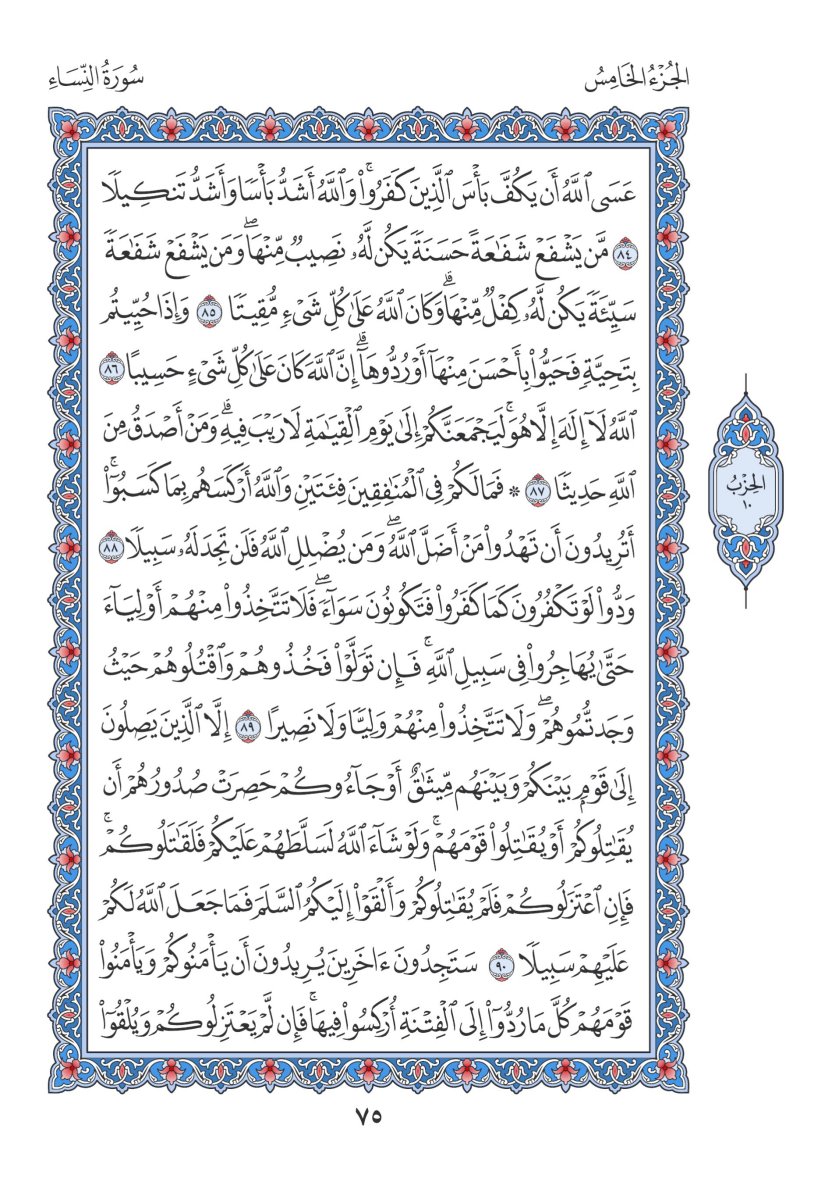 الجُزْءُ الخَامِسُ
سُورَةُ النِّسَاءِ
عَسَى ٱللَّهُ أَن يَكُفَّ بَأْسَ ٱلَّذِينَ كَفَرُواْۚ وَٱللَّهُ أَشَدُّ بَأْسٗا وَأَشَدُّ تَنكِيلٗا
٨٤ مَّن يَشْفَعْ شَفَٰعَةً حَسَنَةٗ يَكُن لَّهُۥ نَصِيبٞ مِّنْهَاۖ وَمَن يَشْفَعْ شَفَٰعَةٗ
سَيِّئَةٗ يَكُن لَّهُۥ كِفْلٞ مِّنْهَاۗ وَكَانَ ٱللَّهُ عَلَىٰ كُلِّ شَيْءٖ مُّقِيتٗا ٨٥ وَإِذَا حُيِّيتُم
بِتَحِيَّةٖ فَحَيُّواْ بِأَحْسَنَ مِنْهَآ أَوْ رُدُّوهَآۗ إِنَّ ٱللَّهَ كَانَ عَلَىٰ كُلِّ شَيْءٍ حَسِيبًا ٨٦
ٱللَّهُ لَآ إِلَٰهَ إِلَّا هُوَۚ لَيَجْمَعَنَّكُمْ إِلَىٰ يَوْمِ ٱلْقِيَٰمَةِ لَا رَيْبَ فِيهِۗ وَمَنْ أَصْدَقُ مِنَ
ٱللَّهِ حَدِيثٗا ٨٧ * فَمَا لَكُمْ فِي ٱلْمُنَٰفِقِينَ فِئَتَيْنِ وَٱللَّهُ أَرْكَسَهُم بِمَا كَسَبُوٓاْۚ
أَتُرِيدُونَ أَن تَهْدُواْ مَنْ أَضَلَّ ٱللَّهُۖ وَمَن يُضْلِلِ ٱللَّهُ فَلَن تَجِدَ لَهُۥ سَبِيلٗا ٨٨
وَدُّواْ لَوْ تَكْفُرُونَ كَمَا كَفَرُواْ فَتَكُونُونَ سَوَآءٗۖ فَلَا تَتَّخِذُواْ مِنْهُمْ أَوْلِيَآءَ
حَتَّىٰ يُهَاجِرُواْ فِي سَبِيلِ ٱللَّهِۚ فَإِن تَوَلَّوْاْ فَخُذُوهُمْ وَٱقْتُلُوهُمْ حَيْثُ
وَجَدتُّمُوهُمْۖ وَلَا تَتَّخِذُواْ مِنْهُمْ وَلِيّٗا وَلَا نَصِيرًا ٨٩ إِلَّا ٱلَّذِينَ يَصِلُونَ
إِلَىٰ قَوْمِۭ بَيْنَكُمْ وَبَيْنَهُم مِّيثَٰقٌ أَوْ جَآءُوكُمْ حَصِرَتْ صُدُورُهُمْ أَن
يُقَٰتِلُوكُمْ أَوْ يُقَٰتِلُواْ قَوْمَهُمْۚ وَلَوْ شَآءَ ٱللَّهُ لَسَلَّطَهُمْ عَلَيْكُمْ فَلَقَٰتَلُوكُمْۚ
فَإِنِ ٱعْتَزَلُوكُمْ فَلَمْ يُقَٰتِلُوكُمْ وَأَلْقَوْاْ إِلَيْكُمُ ٱلسَّلَمَ فَمَا جَعَلَ ٱللَّهُ لَكُمْ
عَلَيْهِمْ سَبِيلٗا ٩٠ سَتَجِدُونَ ءَاخَرِينَ يُرِيدُونَ أَن يَأْمَنُوكُمْ وَيَأْمَنُواْ
قَوْمَهُمْ كُلَّ مَا رُدُّوٓاْ إِلَى ٱلْفِتْنَةِ أُرْكِسُواْ فِيهَاۚ فَإِن لَّمْ يَعْتَزِلُوكُمْ وَيُلْقُوٓاْ
الحِزْبُ
١٠
٧٥